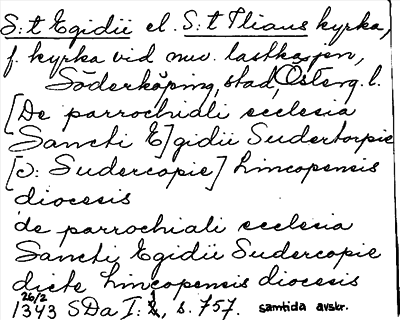 S:t Egidii el. S:t Ilians kyrka,
f. kyrka vid nuv. lastkajen,
Söderköping, stad, Österg. l.
[De parrochiali ecclesia
Sancti E]gidii Sudertorpie
[ɔ: Sudercopie] Lincopensis
diocesis
de parrochiali ecclesia
Sancti Egidii Sudercopie
dicte Lincopensis diocesis
26/2
1343 SDa I: 1, s. 757. samtida avskr.